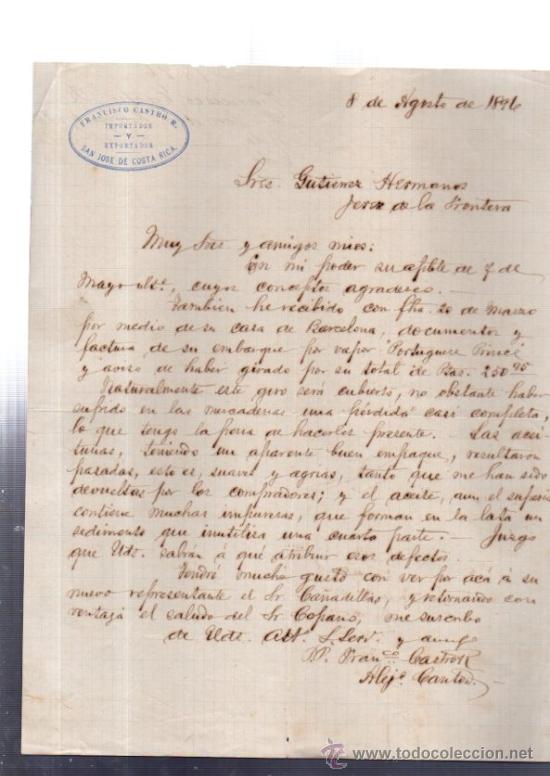 8 de Agosto de 1896
FRANCISCO CASTRO R.
IMPORTADOR
Y
EXPORTADOR
SAN JOSE DE COSTA RICA.
Sres. Gutierrez Hermanos
Jerez de la Frontera
Muy Sres y amigos mios:
En mi poder su aptble de 7 de
Mayo ulto, cuyos conceptos agradezco.
Tambien he recibido con fha. 20 de Marzo
por medio de su casa de Barcelona, documentos y
factura de su embarque por vapor "Portuguese Prince"
y aviso de haber girado por su total de Ptas. 250 95
Naturalmente este giro será cubierto, no obstante haber
sufrido en las mercaderias una pérdida casi completa,
lo que tengo la pena de hacerlos presente. - Las acei
tunas, teniendo un aparente buen empaque, resultaron
pasadas, esto es, suaves y agrias, tanto que me han sido
devueltas por los compradores; y el aceite, aun el superior
contiene muchas impurezas, que forman en la lata un
sedimento que inutiliza una cuarta parte. - Juzgo
que Uds. sabrán á qué atribuir esos defectos.
Tendré mucho gusto con ver por acá á su
nuevo representante el Sr. Cañadillas, y retornando con
ventaja el saludo del Sr. Copano, me suscribo
de Uds. Atto. S. Serv. y amigo
P.P. Franco Castro R
Alejo
www.todocoleccion.net